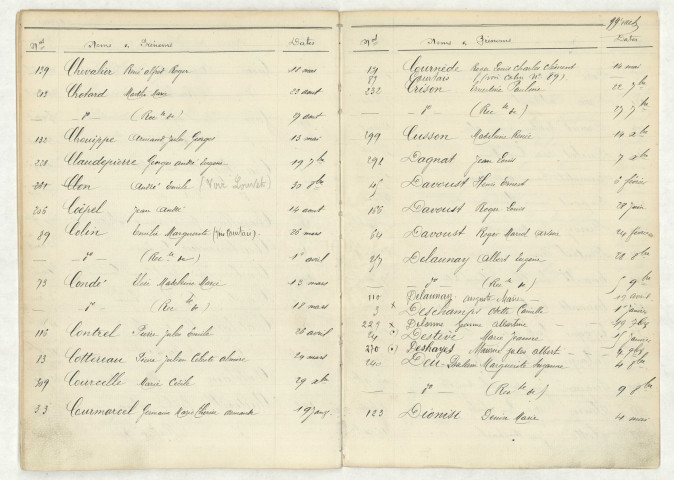 Nos Noms & Prénoms Dates
139 Chevalier René Alfred Roger 18 mars
213 Chotard Marthe Marie 22 août
— — do (Rec te de) 9 août
132 Chouippe Armand Jules Georges 13 mai
228 Claudepierre Georges André Eugène 19 7bre
Clen André Emile (Voir
206 Clérel Jean André 14 août
89 Colin Emilie Marguerite 26 mars
— — do (Rec te de) 1er avril
73 Condé Marie 13 mars
— — do (Rec te de) 18 mars
116 Contrel Pierre Jules Emile 26 avril
83 Cottereau Pierre Julien Céleste 24 mars
309 Courcelle Marie Cécile 29 xbre
23 Courmarcel Germaine Marie Thérèse 19 janv
Nos Noms & Prénoms Dates
131 Cournède Louis Charles Clément 14 mai
89 (voir Colin No 89) —
232 Crison Pauline 22 7bre
— — do (Rec te de) 27 7bre
299 Cusson Madeleine Renée 14 xbre
292 Dagnat Jean Louis 7 xbre
45 Davoust Henri Ernest 6 février
166 Davoust Roger Louis 28 juin
64 Davoust Roger Marcel 24 février
257 Delaunay Albert Eugène 28 8bre
— — do (Rec te de) 5 9bre
110 Delaunay Auguste Marie 19 avril
3 x Deschamps Odette Camille 1er janvier
229 x Delorme Jeanne Albertine
24 Destève Marie Jeanne janvier
270 Deshayes Maurice Jules Albert
240 Deu Marguerite Suzanne 4 8bre
— — do (Rec te de) 9 8bre
123 Dionisi Denise Marie 4 mai